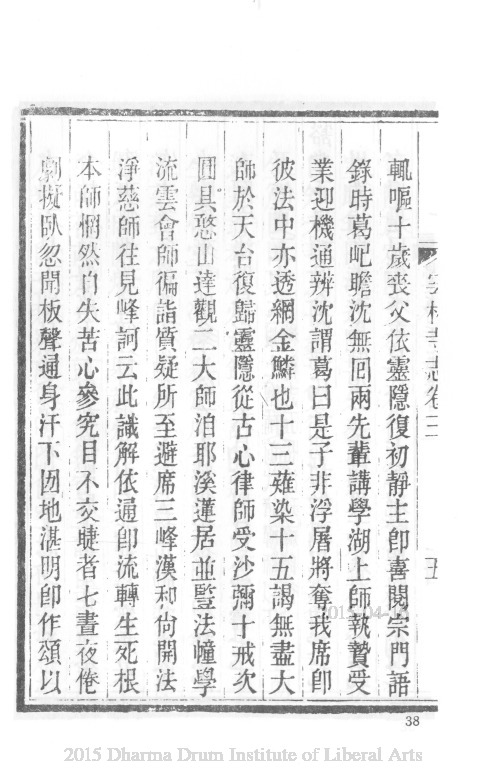 雲林寺志卷三
五
輒嘔十歲喪父依靈隱復初靜主卽喜閱宗門語
錄時葛屺瞻沈無回兩先輩講學湖上師執贄受
業迎機通辨沈謂葛曰是子非浮屠將奪我席卽
彼法中亦透網金鱗也十三薙染十五謁無盡大
師於天台復歸靈隱從古心律師受沙彌十戒次
圓具憨山達觀二大師洎耶溪蓮居並豎法幢學
流雲會師徧詣質疑所至避席三峰漢和尙開法
淨慈師往見峰訶云此識解依通卽流轉生死根
本師惘然自失苦心參究目不交睫者七晝夜倦
劇擬臥忽開板聲通身汗下囫地湛明卽作頌以
2015-04-13
38
2015 Dharma Drum Institute of Liberal Arts